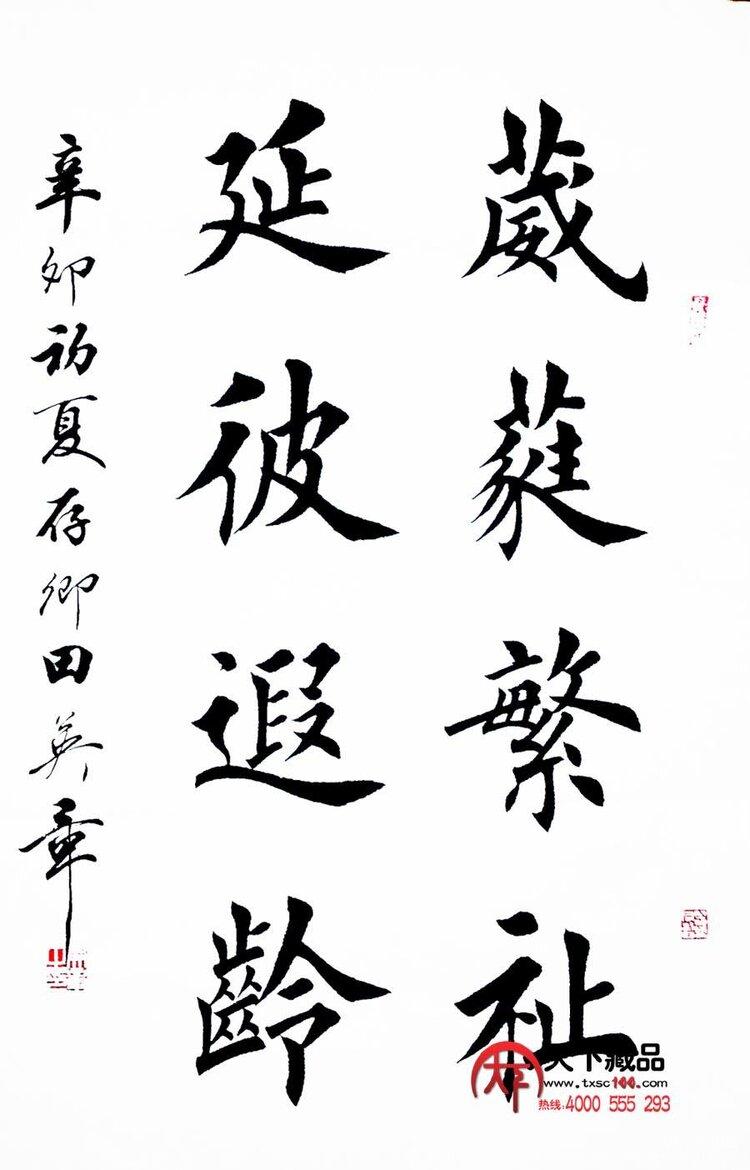 葳蕤繁祉
延彼遐龄
辛卯初夏存卿田英章
天下藏品
www.txsc100.com
热线:4000 555 293